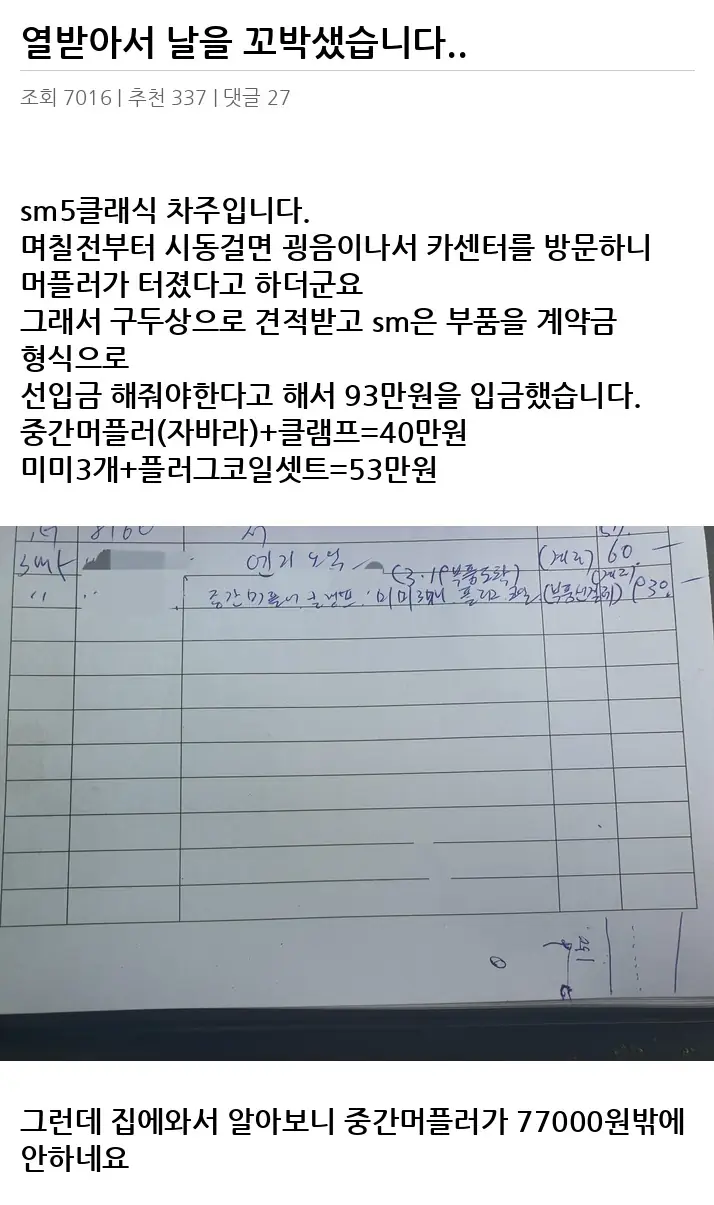 열받아서 날을 꼬박샜습니다..
조회 7016 | 추천 337 | 댓글 27
sm5클래식 차주입니다.
며칠전부터 시동걸면 굉음이나서 카센터를 방문하니
머플러가 터졌다고 하더군요
그래서 구두상으로 견적받고 sm은 부품을 계약금
형식으로
선입금 해줘야한다고 해서 93만원을 입금했습니다.
중간머플러(자바라)+클램프=40만원
미미3개+플러그코일셋트=53만원
엔진오일 (계좌) 60.
(3.19 부품도착) (계좌)
중간머플러 클램프. 미미3개 플러그 코일 930.
그런데 집에와서 알아보니 중간머플러가 77000원밖에
안하네요